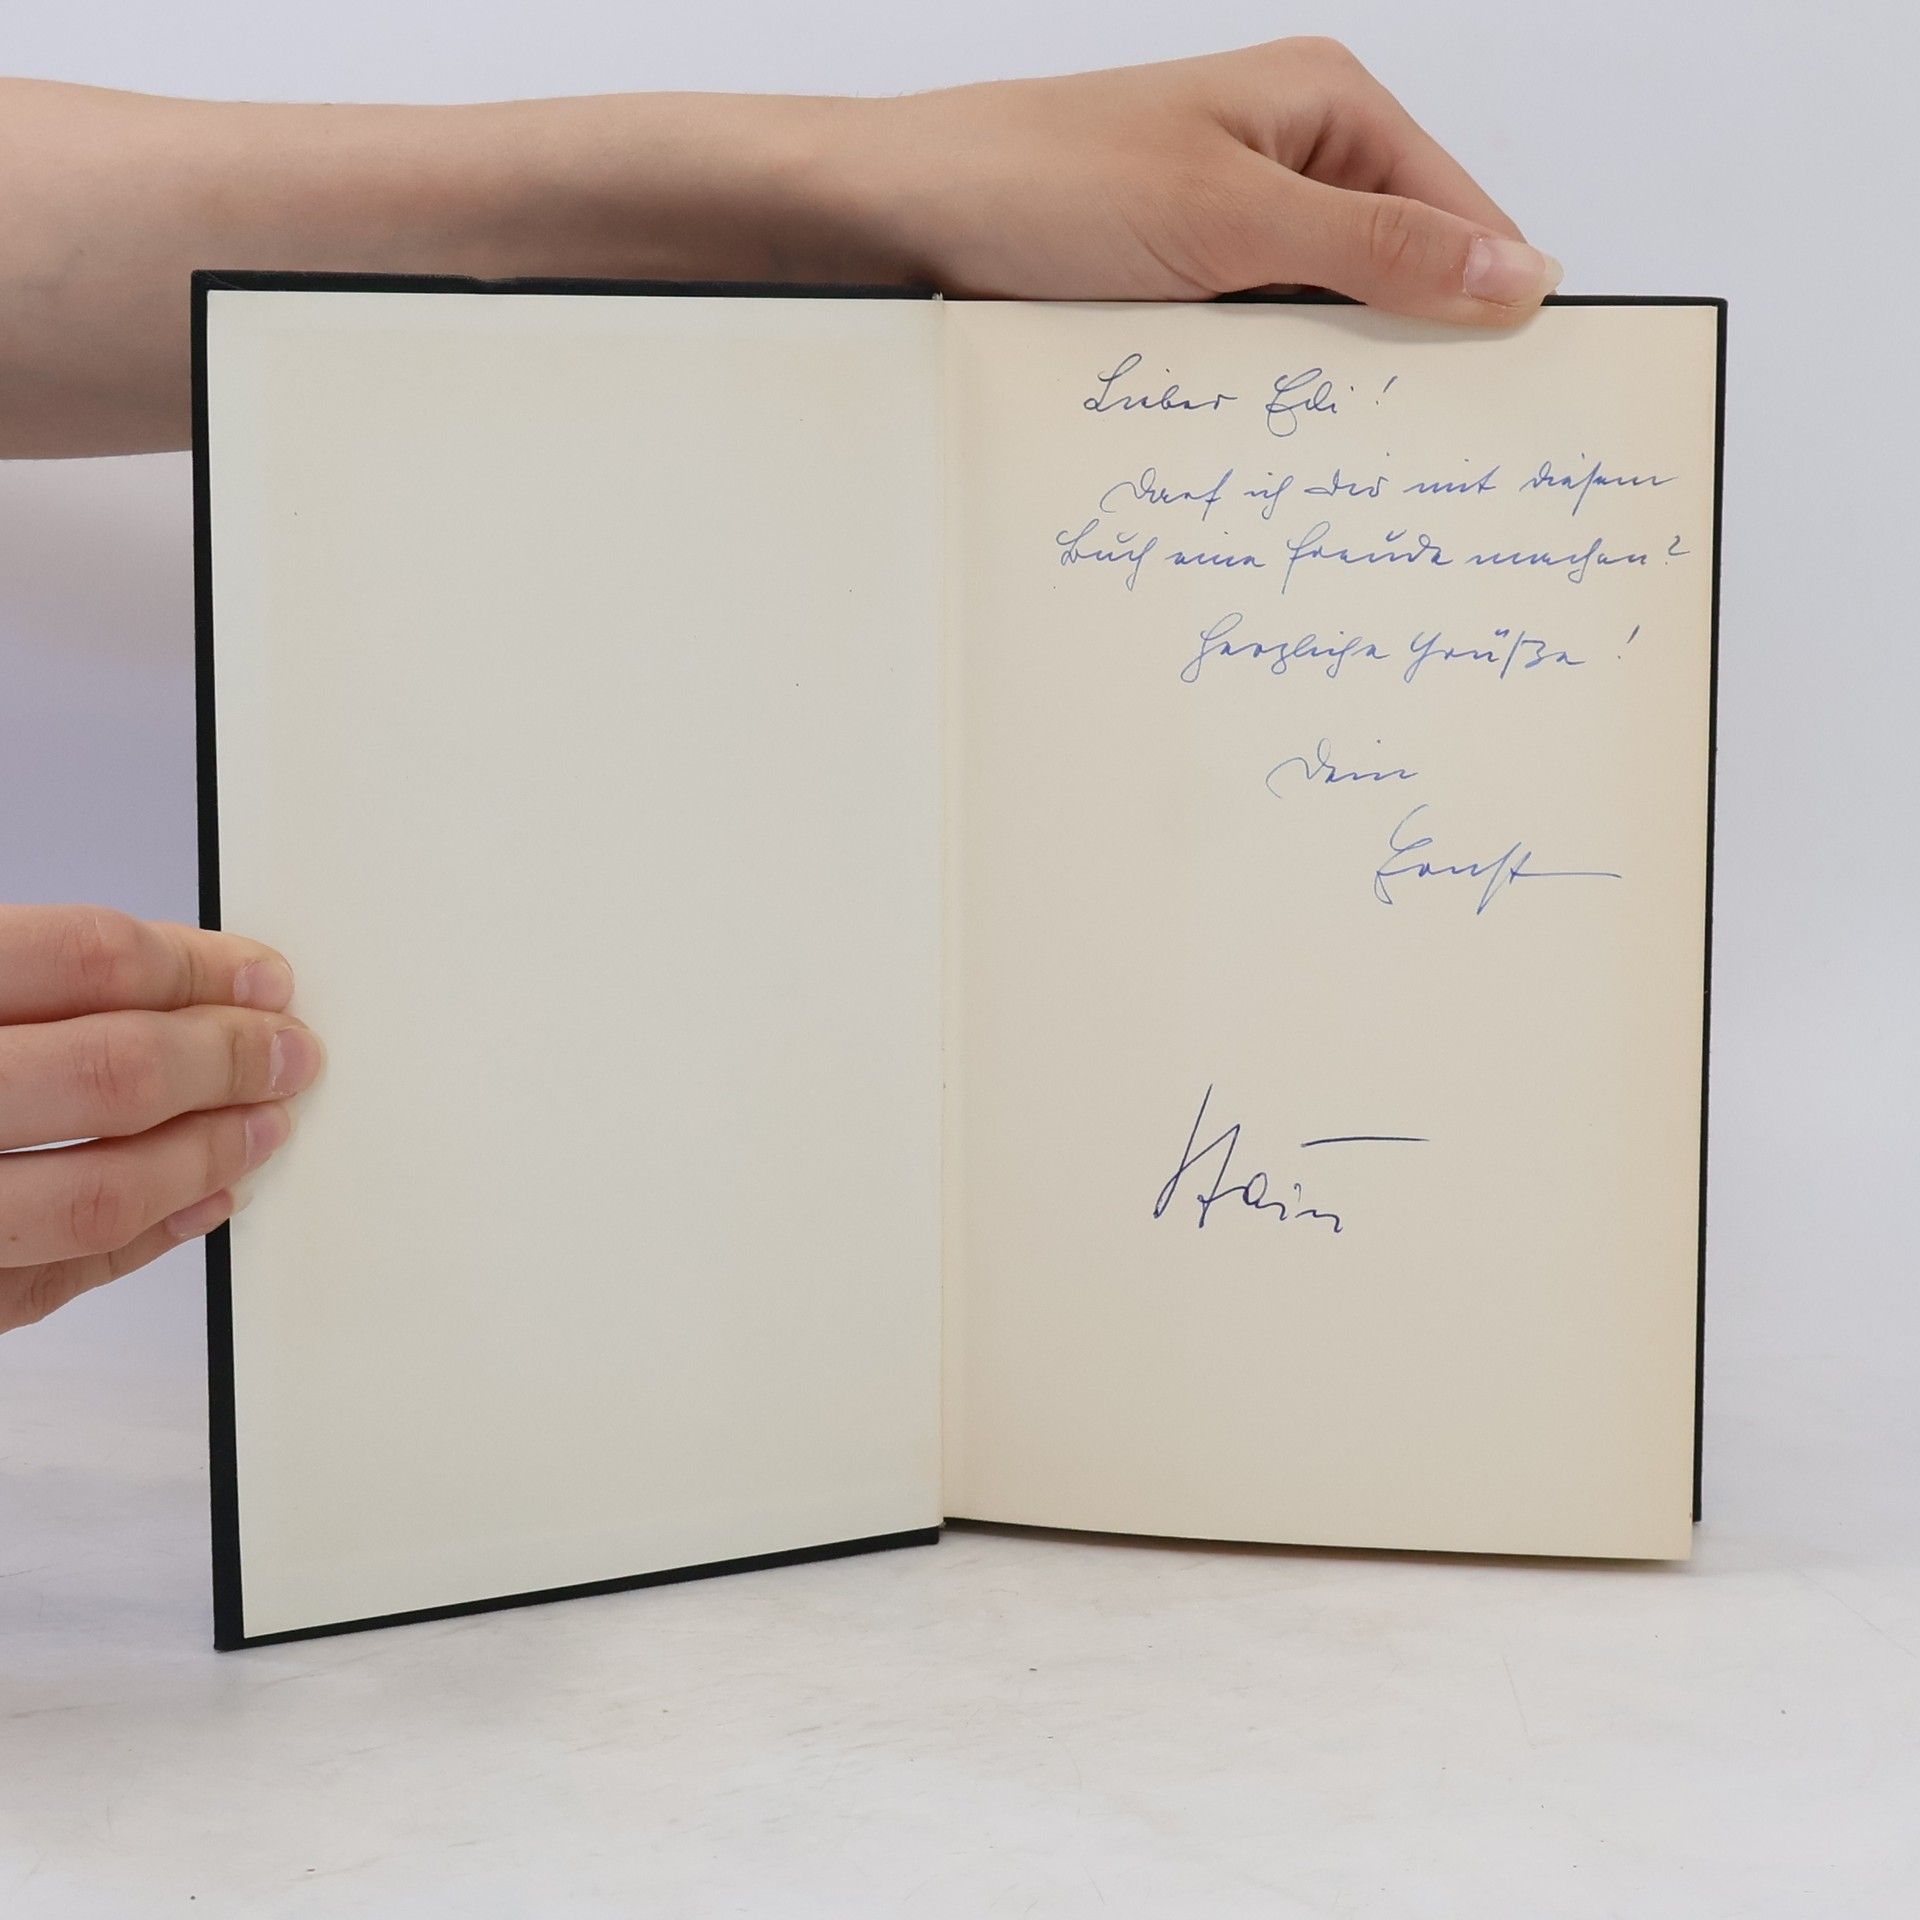 Lieber Edi!
Darf ich dir mit diesem
Buch eine Freude machen?
Herzliche Grüße!
Dein
Ernst